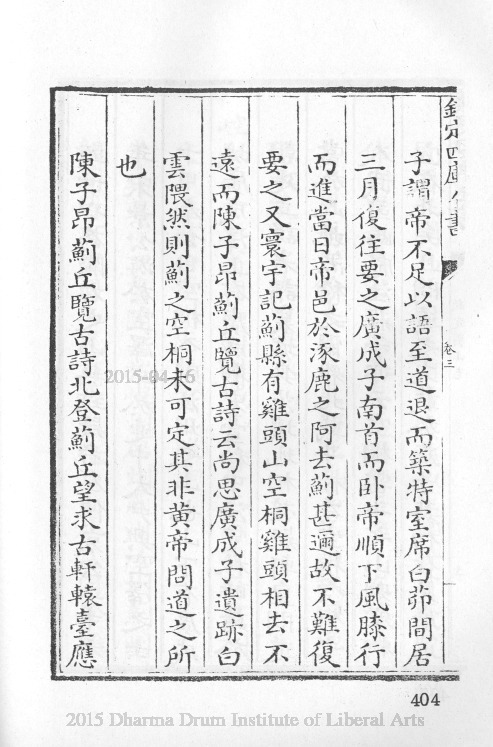 欽定四庫全書
卷三
子謂帝不足以語至道退而築特室席白茆間居
三月復往要之廣成子南首而卧帝順下風膝行
而進當日帝邑於涿鹿之阿去薊甚邇故不難復
要之又寰宇記薊縣有雞頭山空桐雞頭相去不
遠而陳子昂薊丘覽古詩云尚思廣成子遺跡白
雲隈然則薊之空桐未可定其非黄帝問道之所
也
陳子昂薊丘覽古詩北登薊丘望求古軒轅臺應
404
2015-04-16
2015 Dharma Drum Institute of Liberal Arts